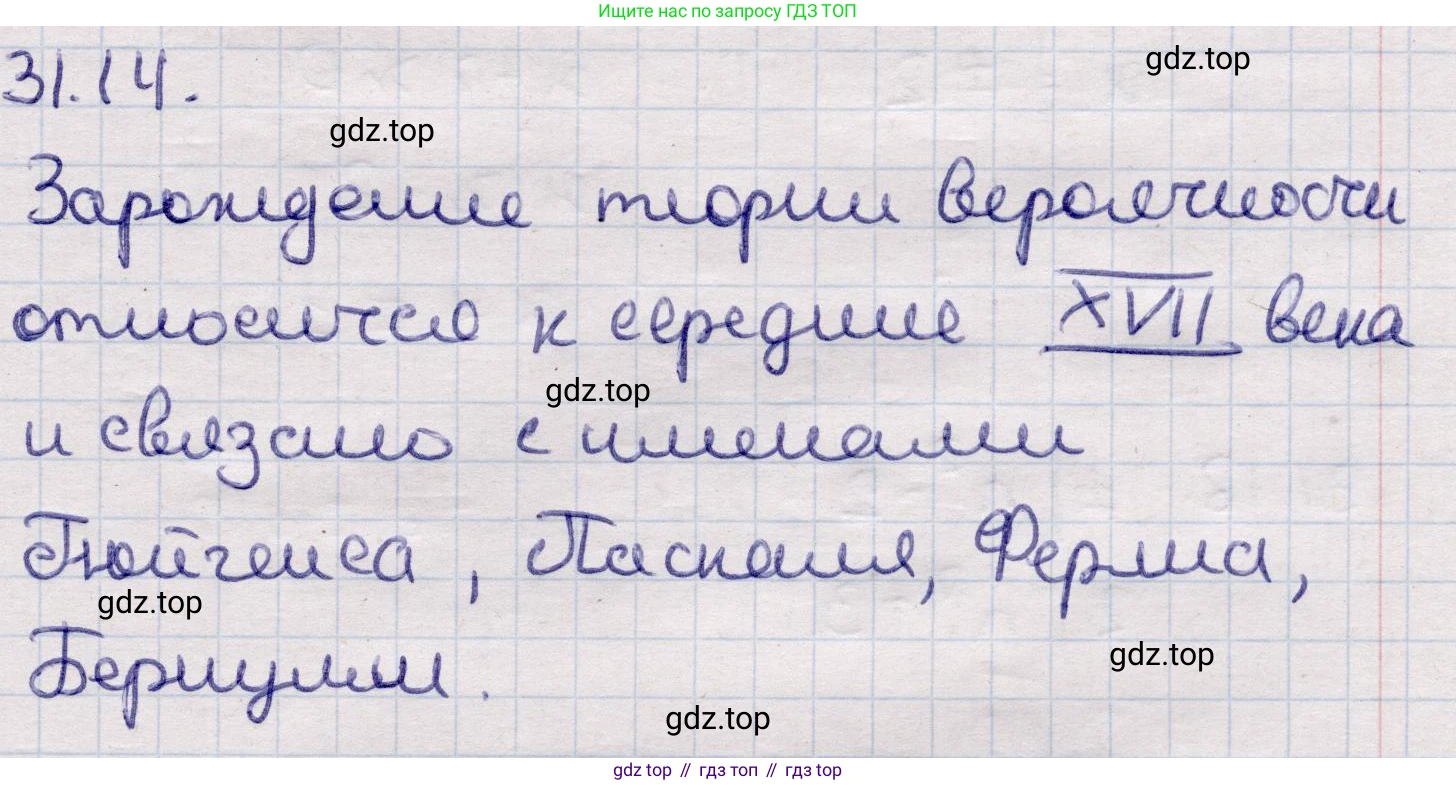 Ищите нас по запросу ГДЗ ТОП
gdz.top
31.14.
gdz.top
Зарождение теории вероятности
относится к середине XVII века
gdz.top
и связано с именами
Гюйгенса, Паскаля, Ферма,
gdz.top
Бернулли.
gdz.top
gdz.top
gdz top // гдз топ // гдз top